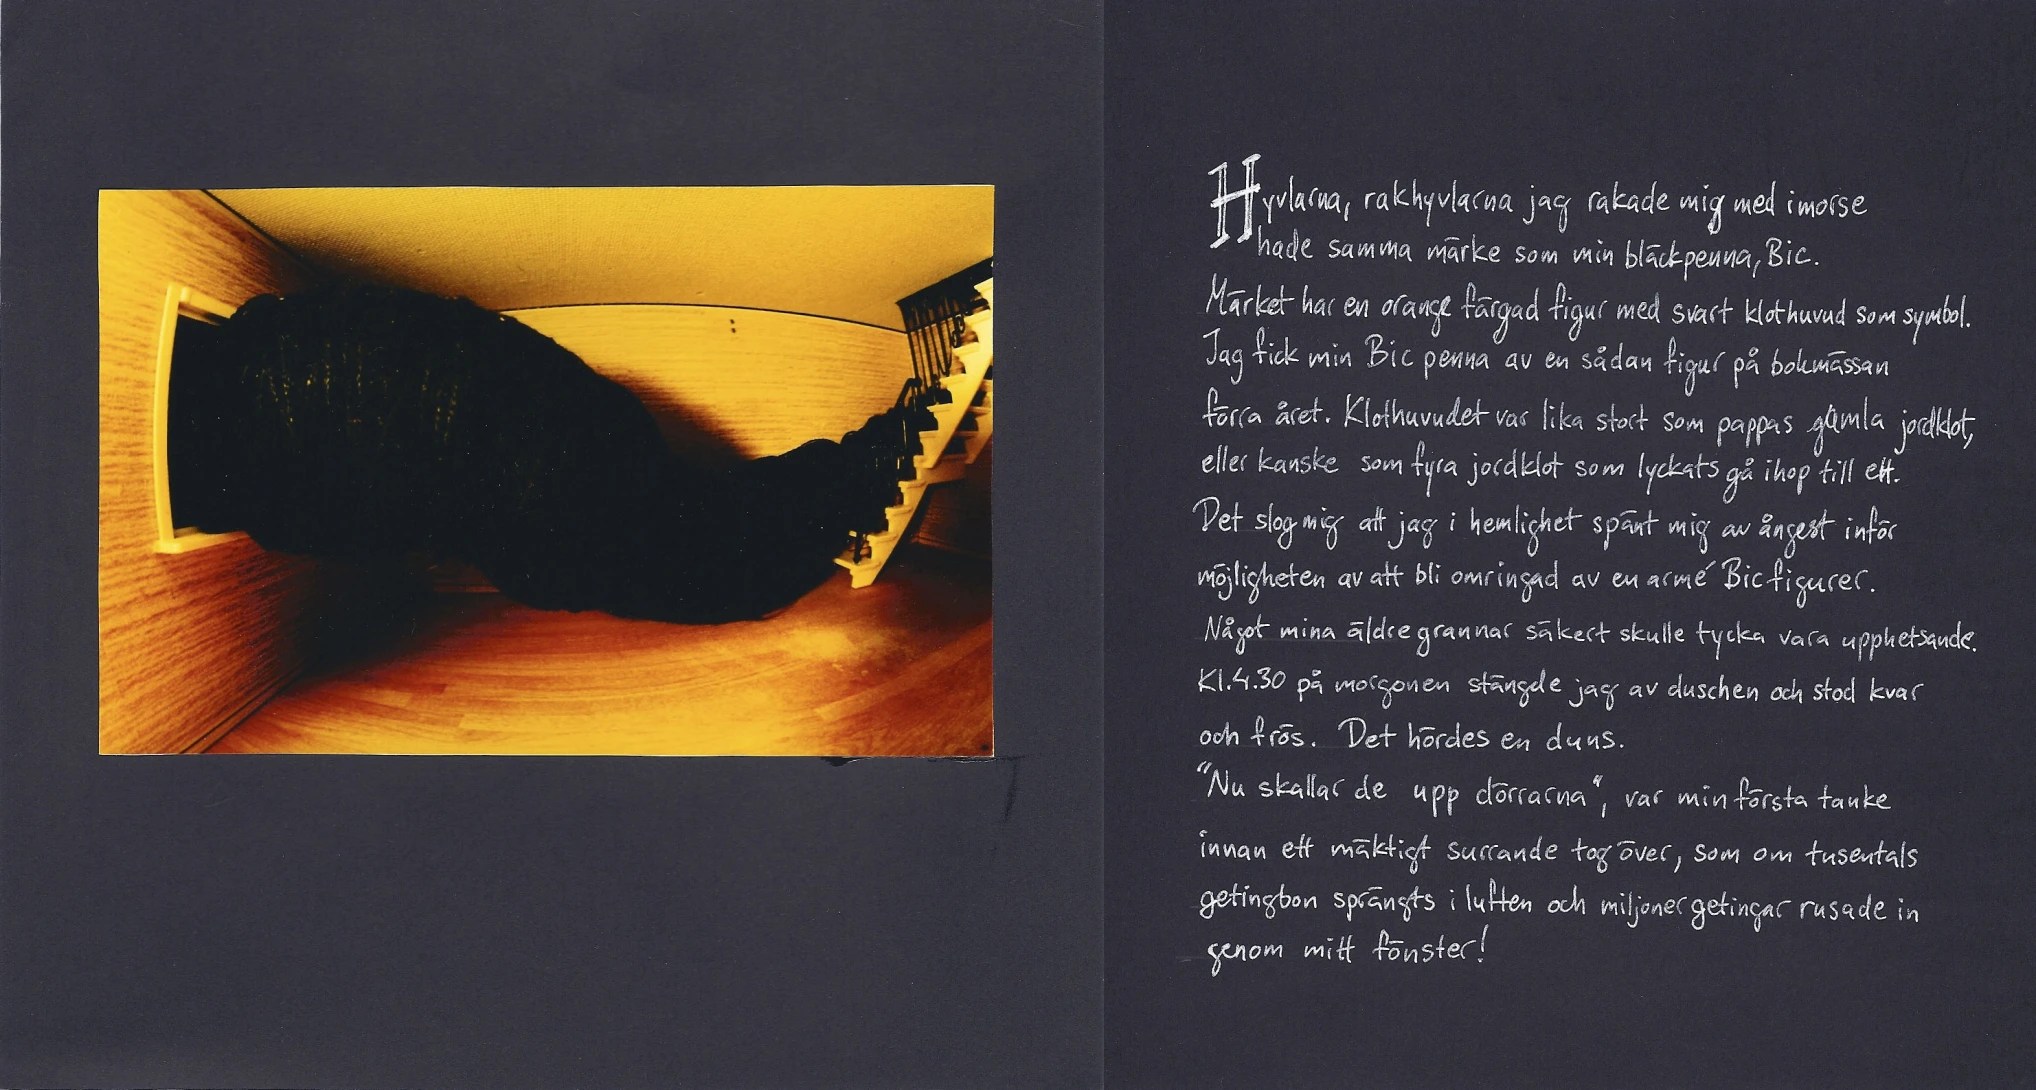 Hyvlarna, rakhyvlarna jag rakade mig med imorse
hade samma märke som min bläckpenna, Bic.
Märket har en orange färgad figur med svart klothuvud som symbol.
Jag fick min Bic penna av en sådan figur på bokmässan
förra året. Klothuvudet var lika stort som pappas gamla jordklot,
eller kanske som fyra jordklot som lyckats gå ihop till ett.
Det slog mig att jag i hemlighet spänt mig av ångest inför
möjligheten av att bli omringad av en armé Bicfigurer.
Något mina äldre grannar säkert skulle tycka vara upphetsande.
Kl.4.30 på morgonen stängde jag av duschen och stod kvar
och frös. Det hördes en duns.
"Nu skallar de upp dörrarna", var min första tanke
innan ett mäktigt surrande tog över, som om tusentals
getingbon sprängts i luften och miljoner getingar rusade in
genom mitt fönster!